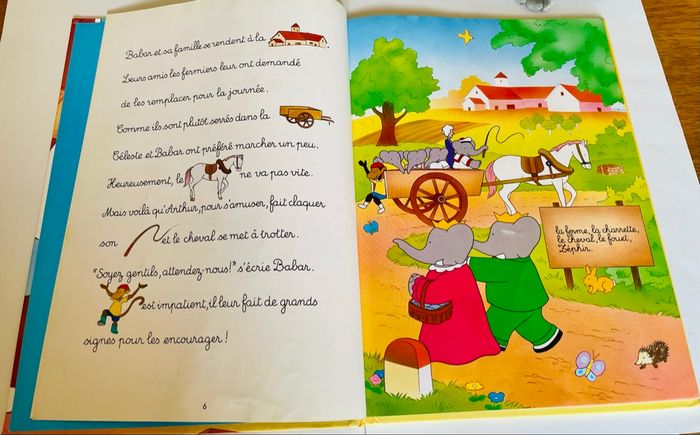 Babar et sa famille se rendent à la
Leurs amis les fermiers leur ont demandé
de les remplacer pour la journée.
Comme ils sont plutôt serrés dans la
Céleste et Babar ont préféré marcher un peu.
Heureusement, le ne va pas vite.
Mais voilà qu'Arthur, pour s'amuser, fait claquer
son et le cheval se met à trotter.
"Soyez gentils, attendez-nous!" s'écrie Babar.
est impatient, il leur fait de grands
signes pour les encourager !
6
la ferme, la charrette,
le cheval, le fouet,
Zéphir.